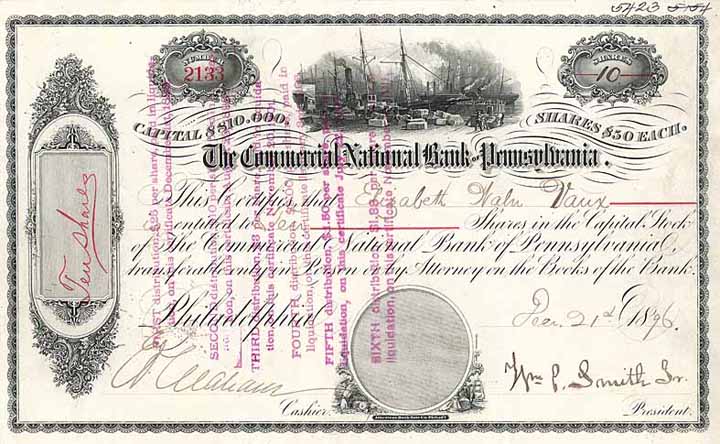 5423
NUMBER
2133
SHARES
10
CAPITAL $810,000.
SHARES $50 EACH.
The Commercial National Bank of Pennsylvania.
This Certifies that Elizabeth Waln Vaux
is entitled to Ten Shares in the Capital Stock
of The Commercial National Bank of Pennsylvania,
transferable only in Person or by Attorney on the Books of the Bank.
Philadelphia Dec. 21st 1896.
Ten Shares
Wm P. Smith Jr.
Cashier.
President.
American Bank Note Co. Philada.
FIRST distribution, $25 per share, paid in liquidation, on this certificate December
SECOND distribution, $10 per share, paid in liquidation, on this certificate
THIRD distribution, $8 per share, paid in liquidation, on this certificate November
FOURTH distribution, paid in liquidation, on this certificate
FIFTH distribution, $1.50 per share, paid in liquidation, on this certificate
SIXTH distribution, $1.83 per share, paid in liquidation, on this certificate November